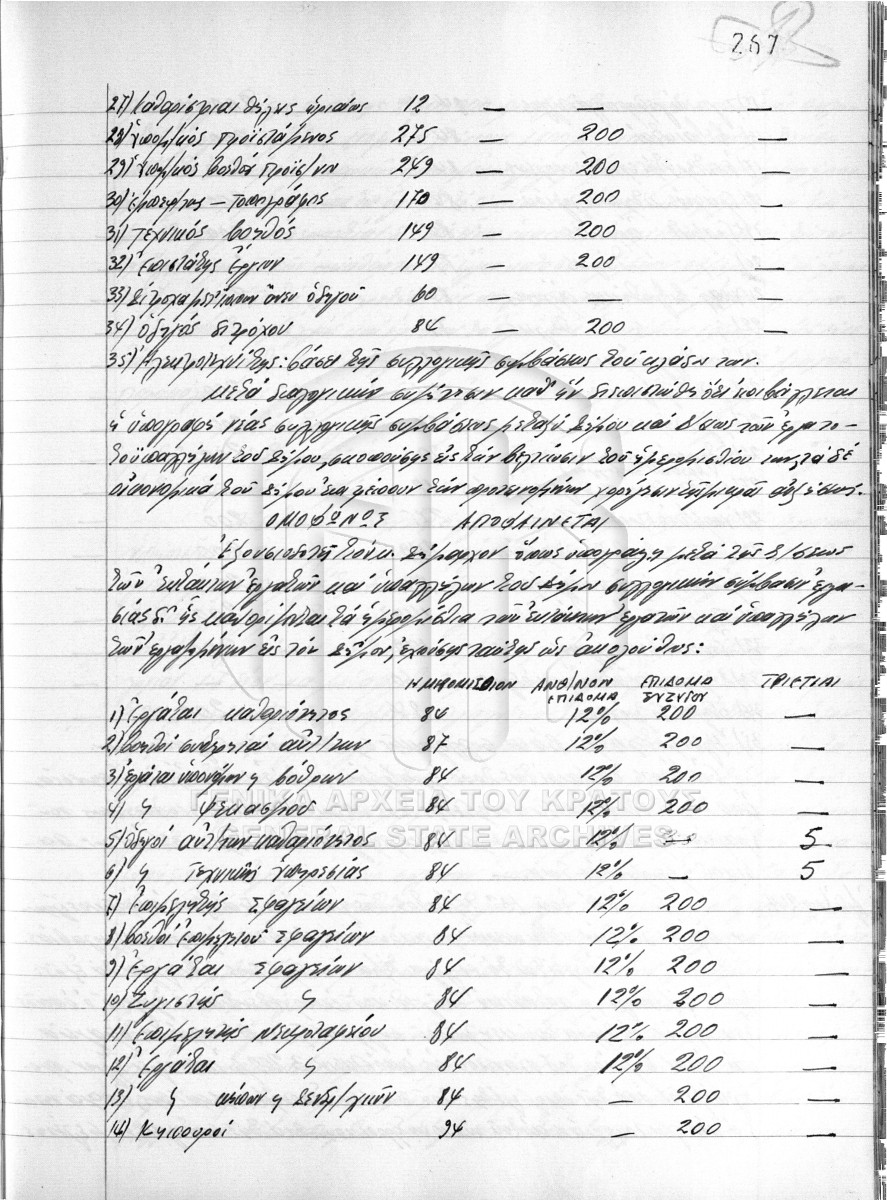 267
27) Καθαρίστριαι θέσεις ὡριαίας 12 — — —
28) Ὑπομ/κός Προϊστάμενος 275 — 200 —
29) Ὑπομ/κός βοηθός Προϊστ/νου 249 — 200 —
30) Ἐμπειρ/νης – Τοπογράφος 170 — 200 —
31) Τεχνικός βοηθός 149 — 200 —
32) Ἐπιστάτης Ἔργων 149 — 200 —
33) ἄνευ ὁδηγοῦ 60 — — —
34) Ὁδηγός διτρόχου 84 — 200 —
35) Ἠλεκτροτεχνίτης: βάσει τῆς συλλογικῆς συμβάσεως τοῦ κλάδου των.
Μετά διαλογικήν συζήτησιν καθ' ἥν διεπιστώθη ὅτι ἐπιβάλλεται
ἡ ὑπογραφή νέας συλλογικῆς συμβάσεως μεταξύ Δήμου καί τῶν ἐργατο-
ϋπαλλήλων τοῦ Δήμου, σκοπούσης εἰς τήν βελτίωσιν τοῦ ἡμερομισθίου των, τά δέ
οἰκονομικά τοῦ Δήμου ἐπιτρέπουν τήν προτεινομένην χορήγησιν αὐξήσεως.
ΟΜΟΦΩΝΩΣ ΑΠΟΦΑΙΝΕΤΑΙ
Ἐξουσιοδοτεῖ τόν κ. Δήμαρχον ὅπως ὑπογράψῃ μετά τῆς
τῶν ἐκτάκτων ἐργατῶν καί ὑπαλλήλων τοῦ Δήμου συλλογικήν σύμβασιν ἐργα-
σίας δι' ἧς καθορίζονται τά ἡμερομίσθια τῶν ἐκτάκτων ἐργατῶν καί ὑπαλλήλων
τῶν ἐργαζομένων εἰς τόν Δῆμον, ἐχούσης ταύτης ὡς ἀκολούθως:
ΗΜΕΡΟΜΙΣΘΙΟΝ ΑΝΘ/ΝΟΝ ΕΠΙΔΟΜΑ ΕΠΙΔΟΜΑ ΣΥΖΥΓΟΥ ΤΡΙΕΤΙΑΙ
1) Ἐργάται καθαριότητος 84 12% 200 —
2) Βοηθοί συνεργείου αὐτ/των 87 12% 200 —
3) Ἐργάται ὑπονόμων ἤ βόθρων 84 12% 200 —
4) 〃 ψεκασμοῦ 84 12% 200 —
5) Ὁδηγοί αὐτ/των καθαριότητος 84 12% — 5
6) 〃 Τεχνικῆς ὑπηρεσίας 84 12% — 5
7) Ἐπιμελητής Σφαγείων 84 12% 200 —
8) Βοηθοί Ἐπιμελητοῦ Σφαγείων 84 12% 200 —
9) Ἐργάται Σφαγείων 84 12% 200 —
10) Ζυγιστής 〃 84 12% 200 —
11) Ἐπιμελητής Νεκροταφείου 84 12% 200 —
12) Ἐργάται 〃 84 12% 200 —
13) 〃 κήπων ἤ δενδρ/γιῶν 84 — 200 —
14) Κηπουροί 94 — 200 —
ΓΕΝΙΚΑ ΑΡΧΕΙΑ ΤΟΥ ΚΡΑΤΟΥΣ
GENERAL STATE ARCHIVES